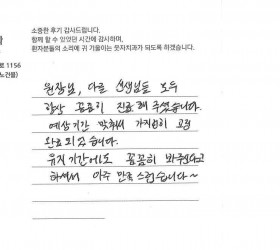 소중한 후기 감사드립니다.
함께 할 수 있었던 시간에 감사하며,
환자분들의 소리에 귀 기울이는 웃자치과가 되도록 하겠습니다.
1156
노건물)
원장님, 다른 선생님들 모두
항상 꼼꼼히 진료해 주셨습니다.
예상기간 맞춰서 가지런히 교정
완료되었습니다.
유지기간에도 꼼꼼히 봐주신다고
하셔서 아주 만족스럽습니다~